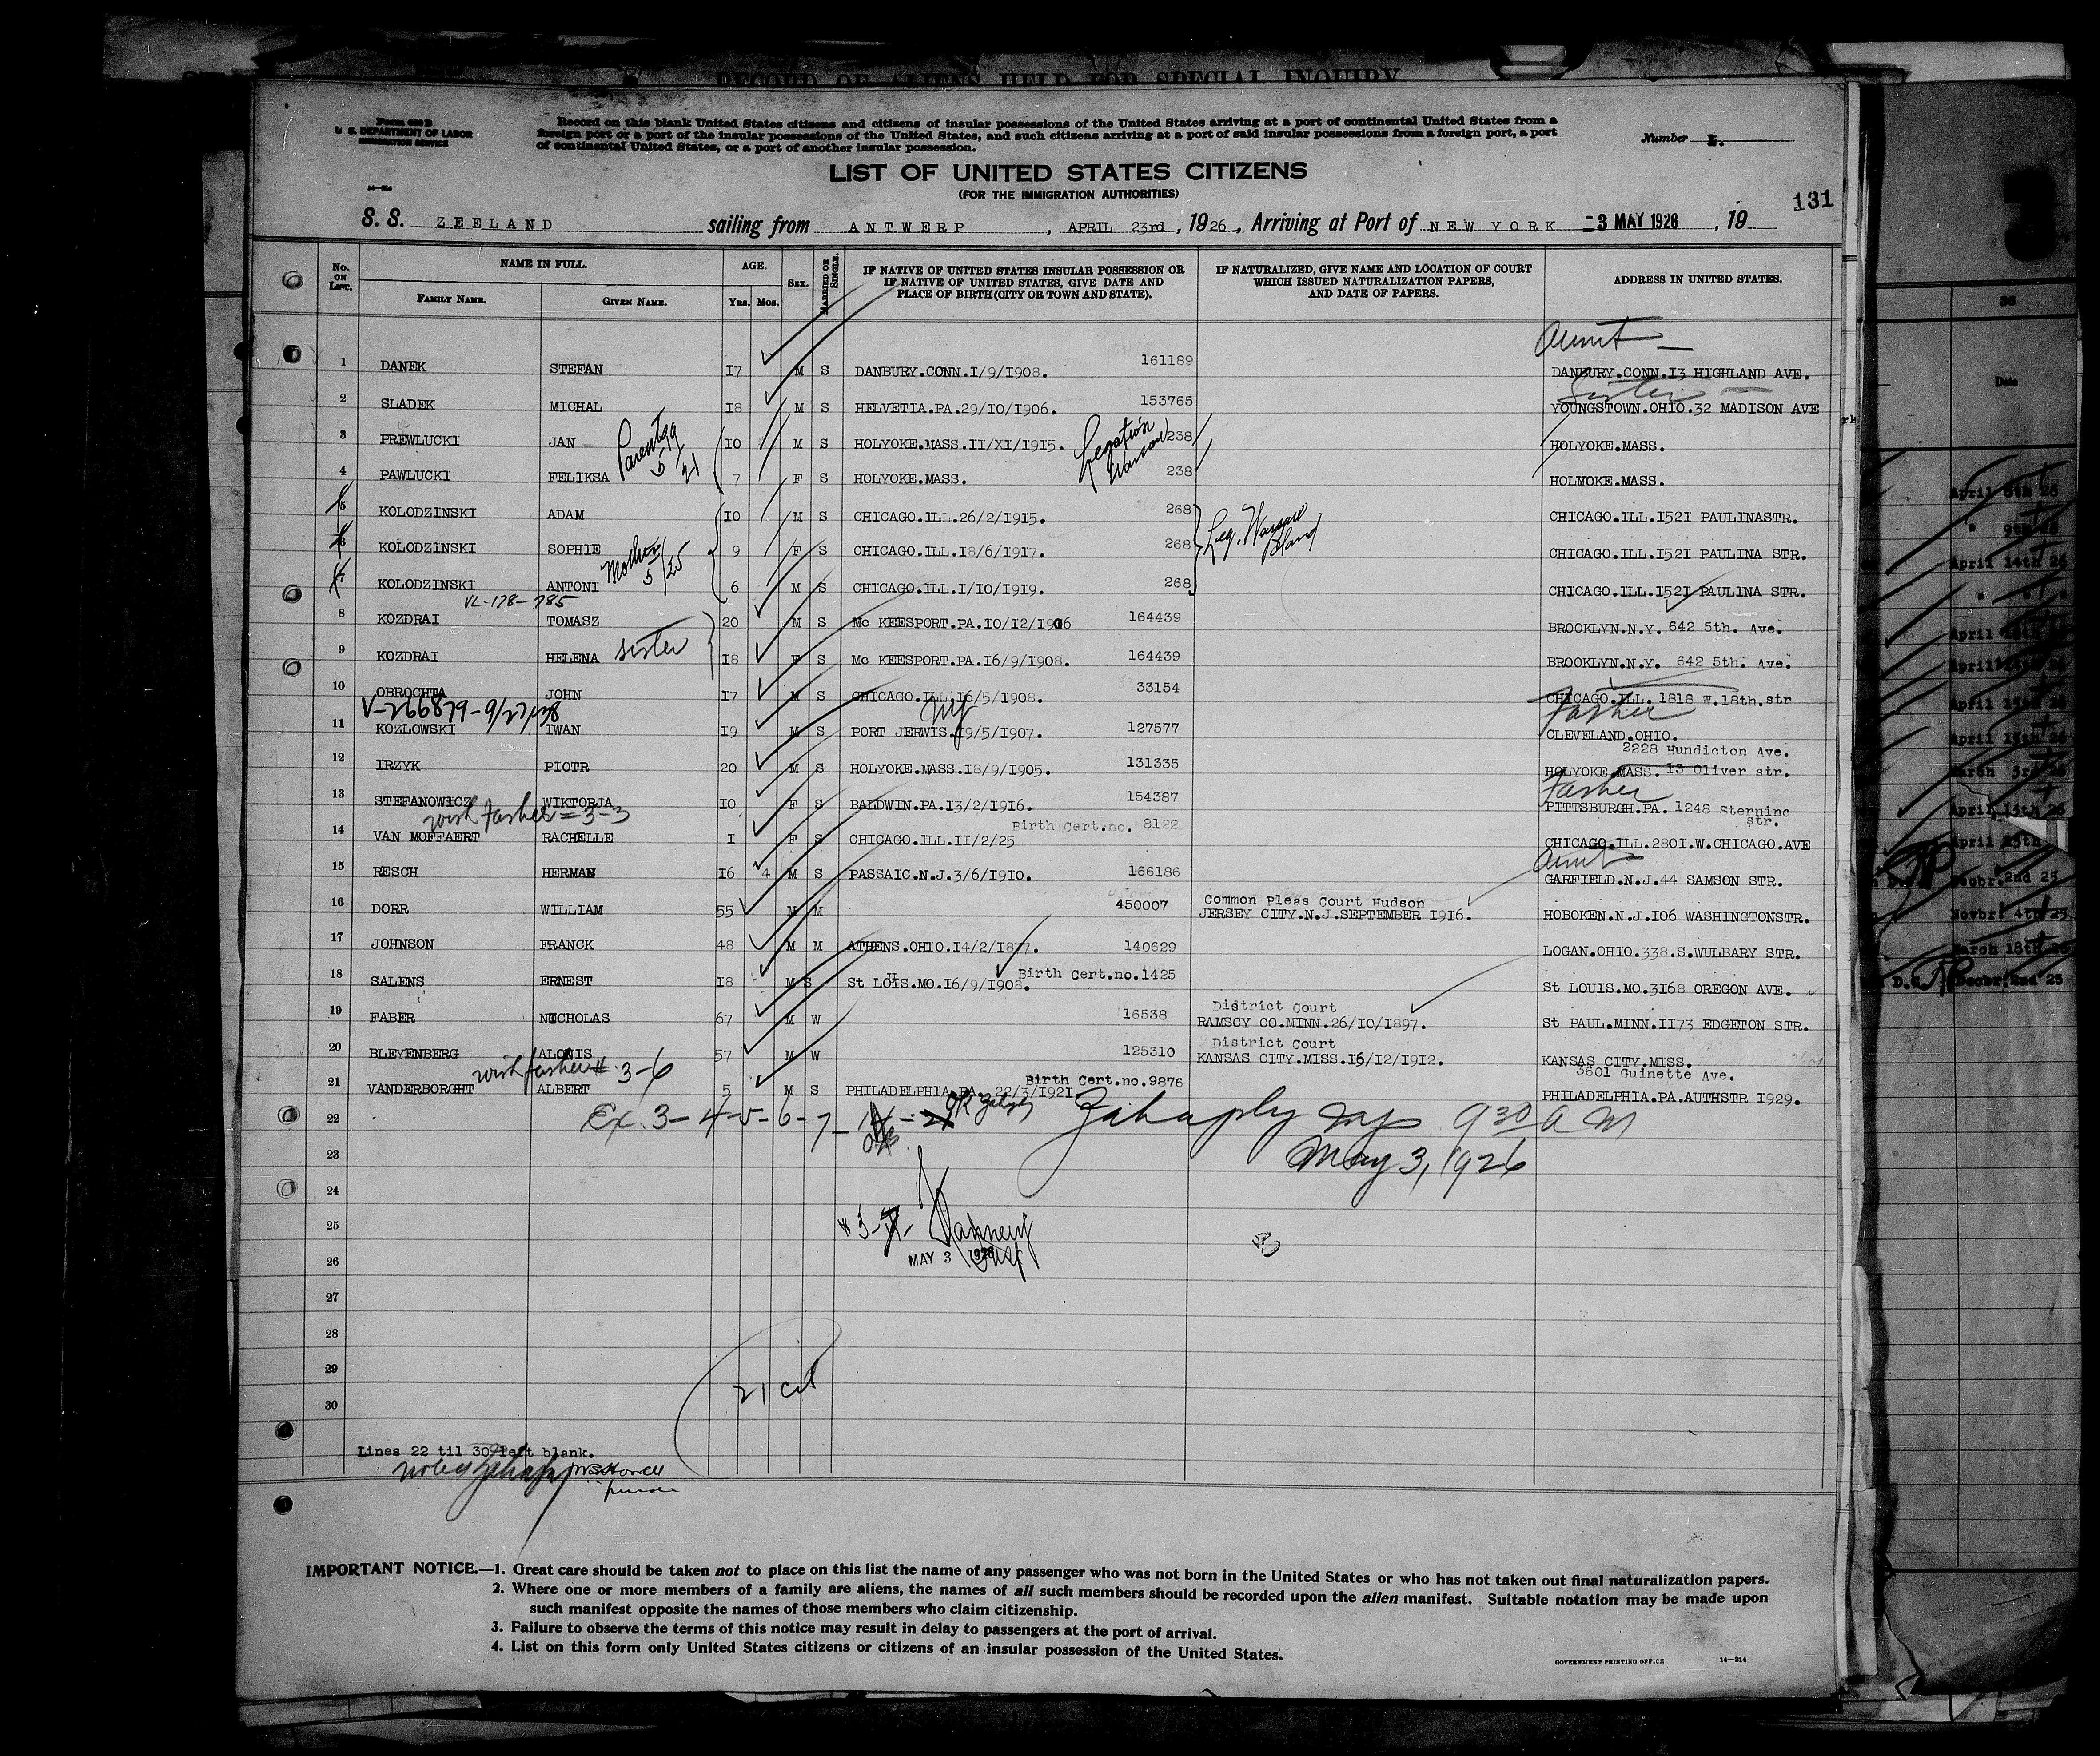 RECORD OF ALIENS HELD FOR SPECIAL INQUIRY
Form 630 B
U. S. DEPARTMENT OF LABOR
IMMIGRATION SERVICE
Record on this blank United States citizens and citizens of insular possessions of the United States arriving at a port of continental United States from a
foreign port or a port of the insular possessions of the United States, and such citizens arriving at a port of said insular possessions from a foreign port, a port
of continental United States, or a port of another insular possession.
Number I.
LIST OF UNITED STATES CITIZENS
(FOR THE IMMIGRATION AUTHORITIES)
14—214
131
S. S. ZEELAND sailing from ANTWERP , APRIL 23rd , 1926 , Arriving at Port of NEW YORK -3 MAY 1926 , 19
No. on List. NAME IN FULL. AGE. Sex. Married or Single. IF NATIVE OF UNITED STATES INSULAR POSSESSION OR IF NATIVE OF UNITED STATES, GIVE DATE AND PLACE OF BIRTH (CITY OR TOWN AND STATE). IF NATURALIZED, GIVE NAME AND LOCATION OF COURT WHICH ISSUED NATURALIZATION PAPERS, AND DATE OF PAPERS. ADDRESS IN UNITED STATES.
Family Name. Given Name. Yrs. Mos.
Aunt
1 DANEK STEFAN 17 M S DANBURY.CONN.I/9/1908. 161189 DANBURY.CONN.I3 HIGHLAND AVE.
Sister
2 SLADEK MICHAL 18 M S HELVETIA.PA.29/10/1906. 153765 YOUNGSTOWN.OHIO.32 MADISON AVE
3 PREWLUCKI JAN Parents 5/21 10 M S HOLYOKE.MASS.II/XI/1915. Legation Warsaw 238 HOLYOKE.MASS.
4 PAWLUCKI FELIKSA 7 F S HOLYOKE.MASS. 238 HOLYOKE.MASS.
5 KOLODZINSKI ADAM 10 M S CHICAGO.ILL.26/2/1915. 268 Leg. Warsaw Poland CHICAGO.ILL.I52I PAULINASTR.
6 KOLODZINSKI SOPHIE Mother 5/25 9 F S CHICAGO.ILL.I8/6/1917. 268 CHICAGO.ILL.I52I PAULINA STR.
7 KOLODZINSKI ANTONI 6 M S CHICAGO.ILL.I/10/1919. 268 CHICAGO.ILL.I52I PAULINA STR.
VL-178-785
8 KOZDRAI TOMASZ 20 M S Mc KEESPORT.PA.IO/12/1906 164439 BROOKLYN.N.Y. 642 5th. Ave.
9 KOZDRAI HELENA sister 18 F S Mc KEESPORT.PA.I6/9/1908. 164439 BROOKLYN.N.Y. 642 5th. Ave.
10 OBROCHTA JOHN 17 M S CHICAGO.ILL.I6/5/1908. 33154 CHICAGO.ILL. 1818 W.18th.str
V-266879-9/27/38 NY Father
11 KOZLOWSKI IWAN 19 M S PORT JERWIS.I9/5/1907. 127577 CLEVELAND.OHIO.
2228 Hundicton Ave.
12 IRZYK PIOTR 20 M S HOLYOKE.MASS.I8/9/1905. 131335 HOLYOKE.MASS. 13 Oliver str.
Father
13 STEFANOWICZ WIKTORJA 10 F S BALDWIN.PA.I3/2/1916. 154387 PITTSBURGH.PA. 1248 Sterninc str.
with father = 3-3
14 VAN MOFFAERT RACHELLE I F S CHICAGO.ILL.II/2/25 Birth Cert.no. 8122 CHICAGO.ILL.280I.W.CHICAGO.AVE
Aunt
15 RESCH HERMAN 16 4 M S PASSAIC.N.J.3/6/1910. 166186 GARFIELD.N.J.44 SAMSON STR.
16 DORR WILLIAM 55 M M 450007 Common Pleas Court Hudson JERSEY CITY.N.J.SEPTEMBER 1916. HOBOKEN.N.J.IO6 WASHINGTONSTR.
17 JOHNSON FRANCK 48 M M ATHENS.OHIO.I4/2/1877. 140629 LOGAN.OHIO.338.S.WULBARY STR.
18 SALENS ERNEST 18 M S St LOUIS.MO.I6/9/1908. Birth Cert.no.1425 St LOUIS.MO.3I68 OREGON AVE.
19 FABER NICHOLAS 67 M W 16538 District Court RAMSCY CO.MINN.26/10/1897. St PAUL.MINN.II73 EDGETON STR.
20 BLEYENBERG ALONIS 57 M W 125310 District Court KANSAS CITY.MISS.I6/12/1912. KANSAS CITY.MISS.
3601 Guinette Ave.
with father # 3-6
21 VANDERBORGHT ALBERT 5 M S PHILADELPHIA.PA. 22/3/1921 Birth Cert.no.9876 PHILADELPHIA.PA.AUTHSTR I929.
22 Ex. 3-4-5-6-7- 9 30 A M
23 May 3, 1926
24
25
26 MAY 3 1926
27
28
29 21 cit
30
Lines 22 til 30 left blank.
IMPORTANT NOTICE.—1. Great care should be taken not to place on this list the name of any passenger who was not born in the United States or who has not taken out final naturalization papers.
2. Where one or more members of a family are aliens, the names of all such members should be recorded upon the alien manifest. Suitable notation may be made upon
such manifest opposite the names of those members who claim citizenship.
3. Failure to observe the terms of this notice may result in delay to passengers at the port of arrival.
4. List on this form only United States citizens or citizens of an insular possession of the United States.
GOVERNMENT PRINTING OFFICE 14—214
3
36
Date
April 14th 26
March 18th 26